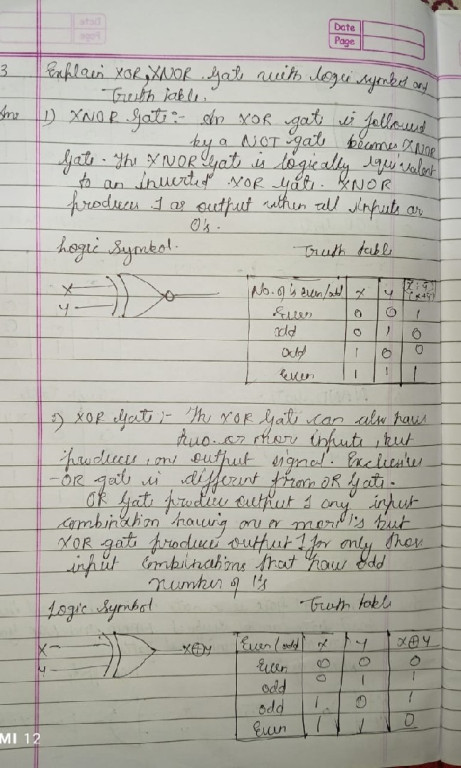 Date
Page
3 Explain XOR, XNOR gate with logic symbol and
Truth table.
Ans 1) XNOR Gate:- An XOR gate is followed
by a NOT gate becomes XNOR
Gate. The XNOR Gate is logically equivalent
to an inverted XOR gate. XNOR
produces 1 as output when all inputs are
0's.
Logic Symbol. Truth table
X
Y
No. of 1's even/odd X Y
Even 0 0 1
odd 0 1 0
odd 1 0 0
Even 1 1 1
2) XOR Gate:- The XOR Gate can also have
two or more inputs, but
produces one output signal. Exclusive
-OR gate is different from OR Gate.
OR Gate produce output 1 any input
combination having one or more 1's but
XOR gate produces output 1 for only those
input combinations that have odd
number of 1's
Logic Symbol Truth table
X
Y
X⊕Y
Even/odd X Y X⊕Y
Even 0 0 0
odd 0 1 1
odd 1 0 1
Even 1 1 0
MI 12